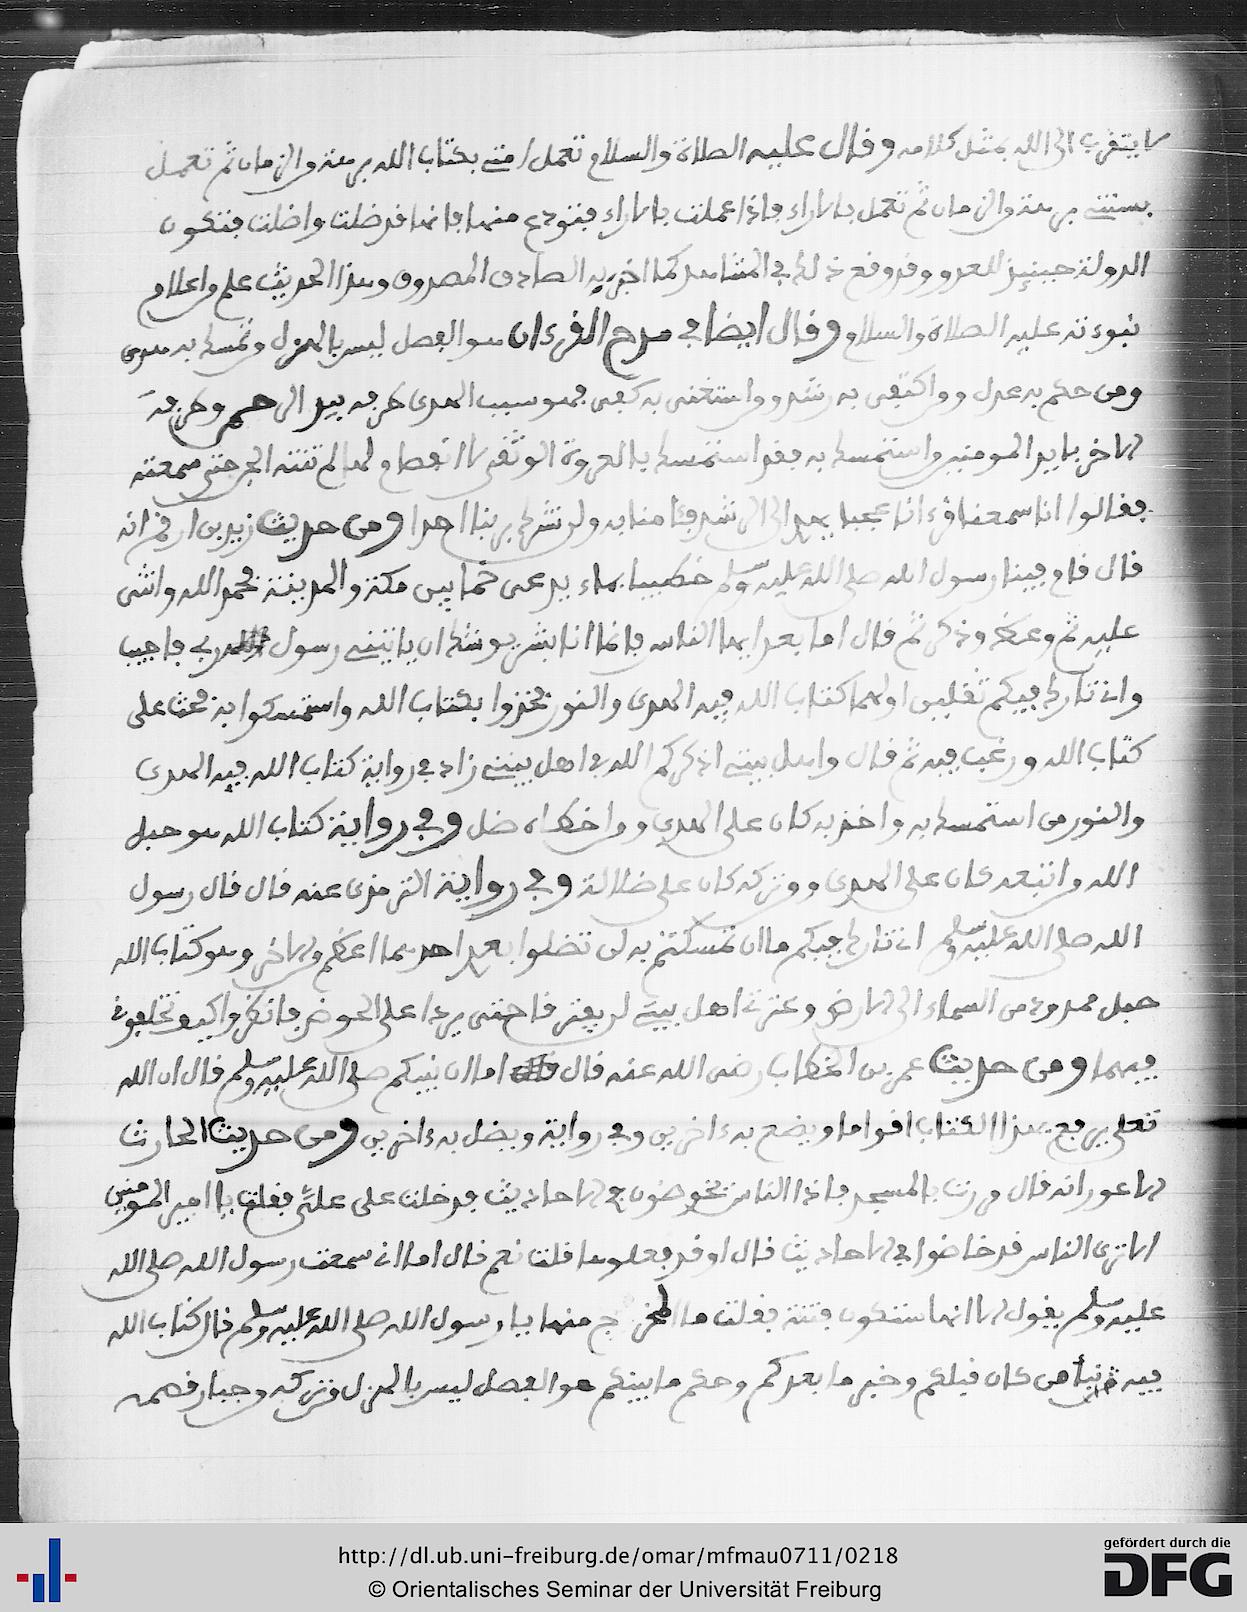 لا يتقرب الى الله بمثل كلامه وقال عليه الصلاة والسلام تعمل امتي بكتاب الله برهة من الزمان ثم تعمل
بسنتي برهة من الزمان ثم تعمل بالاراء فاذا عملت بالاراء فتودع منها فانها قد ضلت واضلت فتكون
الدولة حينئذ للعدو وقد وقع ذلك في المشاهد كما اخبر به الصادق المصدوق وهذا الحديث علم من اعلام
نبوءته عليه الصلاة والسلام وقال ايضا في مدح القرءان هو الفصل ليس بالهزل من تمسك به هدى
ومن حكم به عدل ومن اكتفى به رشد ومن استغنى به كفى فهو سبب الهدى طرفه بيد الرحمن وطرفه
الاخر بايد المومنين من استمسك به فقد استمسك بالعروة الوثقى لا انفصام لها لم تنته الجن حتى سمعته
فقالوا انا سمعنا قرءانا عجبا يهدي الى الرشد فئامنا به ولن نشرك بربنا احدا ومن حديث زيد بن ارقم انه
قال قام فينا رسول الله صلى الله عليه وسلم خطيبا بماء يدعى خما بين مكة والمدينة فحمد الله واثنى
عليه ثم وعظ وذكر ثم قال اما بعد ايها الناس فانما انا بشر يوشك ان ياتيني رسول ربي فاجيب
واني تارك فيكم ثقلين اولهما كتاب الله فيه الهدى والنور فخذوا بكتاب الله واستمسكوا به فحث على
كتاب الله ورغب فيه ثم قال واهل بيتي اذكركم الله في اهل بيتي زاد في رواية كتاب الله فيه الهدى
والنور من استمسك به واخذ به كان على الهدى ومن اخطاه ضل وفي رواية كتاب الله هو حبل
الله من اتبعه كان على الهدى ومن تركه كان على ضلالة وفي رواية الترمذي عنه قال قال رسول
الله صلى الله عليه وسلم اني تارك فيكم ما ان تمسكتم به لن تضلوا بعدي احدهما اعظم من الاخر وهو كتاب الله
حبل ممدود من السماء الى الارض وعترتي اهل بيتي لن يفترقا حتى يردا على الحوض فانظروا كيف تخلفوني
فيهما ومن حديث عمر بن الخطاب رضى الله عنه قال اما ان نبيكم صلى الله عليه وسلم قال ان الله
تعلى يرفع بهذا الكتاب اقواما ويضع به ءاخرين وفي رواية ويضل به ءاخرين ومن حديث الحارث
الاعور انه قال مررت بالمسجد فاذا الناس يخوضون في الاحاديث فدخلت على علي فقلت يا امير المومنين
الا ترى الناس قد خاضوا في الاحاديث قال اوقد فعلوها قلت نعم قال اما اني سمعت رسول الله صلى الله
عليه وسلم يقول الا انها ستكون فتنة فقلت ما المخرج منها يا رسول الله صلى الله عليه وسلم قال كتاب الله
فيه نبأ من كان قبلكم وخبر ما بعدكم وحكم ما بينكم هو الفصل ليس بالهزل من تركه من جبار قصمه
http://dl.ub.uni-freiburg.de/omar/mfmau0711/0218
© Orientalisches Seminar der Universität Freiburg
gefördert durch die
DFG